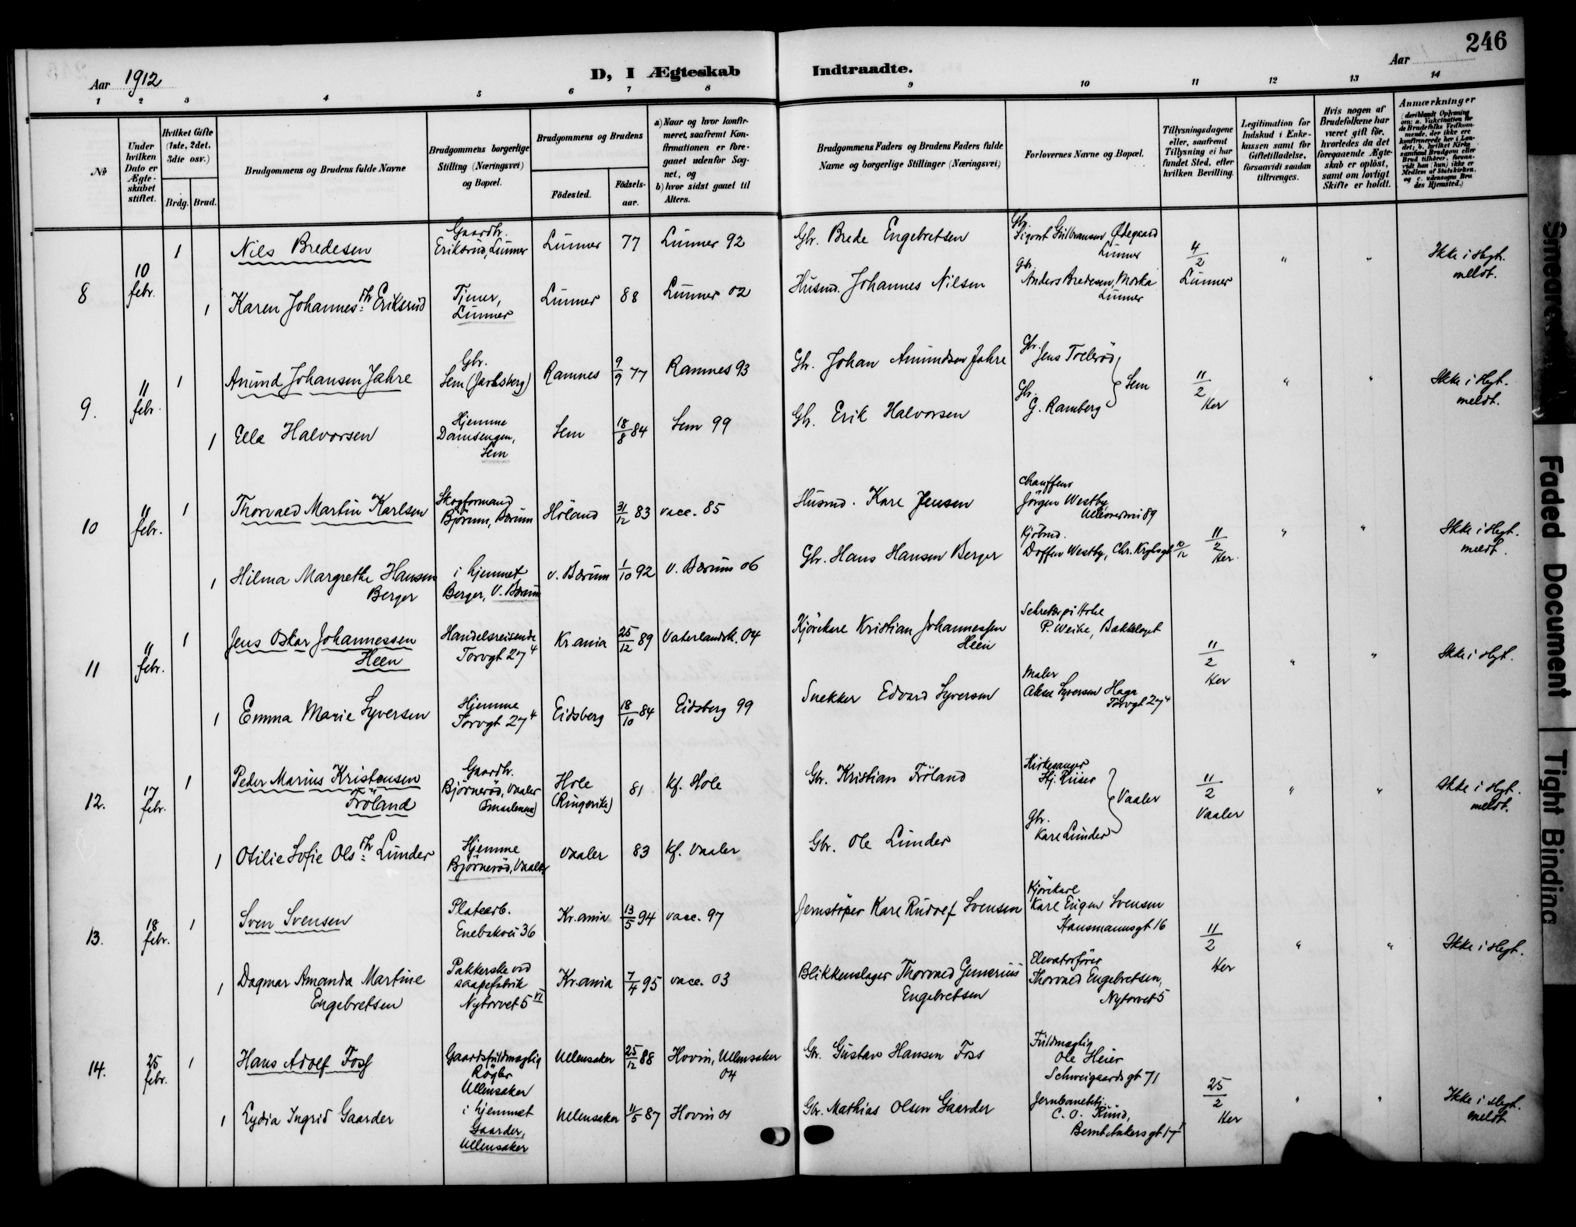 246
Aar 1912
D, I Ægteskab Indtraadte.
Aar
1 2 3 4 5 6 7 8 9 10 11 12 13 14
№
Under hvilken Dato er Ægteskabet stiftet.
Hvilket Gifte (1ste, 2det, 3die osv.)
Brdg. Brud.
Brudgommens og Brudens fulde Navne
Brudgommens borgerlige Stilling (Næringsvei) og Bopæl.
Brudgommens og Brudens
Fødested.
Fødselsaar.
a) Naar og hvor konfirmeret, saafremt Konfirmationen er foregaaet udenfor Sognet, og
b) hvor sidst gaaet til Alters.
Brudgommens Faders og Brudens Faders fulde Navne og borgerlige Stillinger (Næringsvei)
Forlovernes Navne og Bopæl.
Tillysningsdagene eller, saafremt Tillysning ei har fundet Sted, efter hvilken Bevilling.
Legitimation for Indskud i Enkekassen samt for Giftetilladelse, forsaavidt saadan tiltrænges.
Hvis nogen af Brudefolkene har været gift før, hvorledes da det foregaaende Ægteskab er opløst, samt om lovligt Skifte er holdt.
Anmærkninger
8
10 febr.
1 Nils Bredesen
Gaardbr. Eriksrud, Lunner
Lunner 77 Lunner 92
Gbr. Brede Engebretsen
Gbr. Sigvart Gulbransen Ødegaard Lunner
4/2 Lunner
" "
Ikke i Hgt. meldt.
1 Karen Johannes: Th Eriksrud
Tjener, Lunner
Lunner 88 Lunner 02
Husmd. Johannes Nilsen
Gbr. Anders Bredesen, Morka Lunner
9.
11 febr.
1 Anund Johansen Jahre
Gbr. Sem (Jarlsberg)
Ramnes 9/9 77 Ramnes 93
Gbr. Johan Amundsen Jahre
Gbr. Jens Tveterød
Sem
11/2 Ker
" "
Ikke i Hgt. meldt.
1 Ella Halvorsen
Hjemme Damsengen, Sem
Sem 18/8 84 Sem 99
Gbr. Erik Halvorsen
Gbr. G. Ramberg
10
11 febr.
1 Thorvald Martin Karlsen
Skogformand Bjørum, Bærum
Høland 31/12 83 vacc. 85
Husmd. Karl Jensen
Chauffeur Jørgen Westby Ullevoldsvei 89
11/2 Ker.
" "
Ikke i Hgt. meldt.
1 Hilma Margrethe Hansen Berger
i hjemmet Berger, V. Bærum
V. Bærum 1/10 92 V. Bærum 06
Gbr. Hans Hansen Berger
Kjøbmd. Doffen Westby, Chr. Krohsgt
11
11 febr.
1 Jens Oskar Johannessen Heen
Handelsreisende Torvgt 27 4
Kr.ania 25/12 89 Vaterlandsk. 04
Kjørekarl Kristian Johannessen Heen
P. Weibe, Bækkelaget
11/2 Ker
" "
Ikke i Hgt.
1 Emma Marie Syversen
Hjemme Torvgt 27 4
Eidsberg 18/10 84 Eidsberg 99
Snekker Edvard Syversen
Maler Syversen Haga Torvgt 27 4
12.
17 febr.
1 Peder Marius Kristensen Frøland
Gaardbr. Bjørnerød, Vaaler (Smaalenene)
Hole (Ringerike) 81 kf. Hole
Gbr. Kristian Frøland
Kirkesanger Hj. Riiser
Vaaler
11/2 Vaaler
" "
Ikke i Hgt. meldt.
1 Otilie Sofie Ols: Th Lunder
Hjemme Bjørnerød, Vaaler
Vaaler 83 kf. Vaaler
Gbr. Ole Lunder
Gbr. Karl Lunder
13.
18 febr.
1 Sven Svensen
Platearb. Enebakvei 36
Kr.ania 13/5 94 vacc. 97
Jernstøper Karl Rudolf Svensen
Kjørekarl Karl Eugen Svensen Hausmannsgt 16
11/2 Ker
" "
Ikke i Hgt.
1 Dagmar Amanda Martine Engebretsen
Pakkerske ved saapefabrik Nytorvet 5 VI
Kr.ania 7/4 95 vacc. 03
Blikkenslager Thorvald Gunerius Engebretsen
Elevatorfører Thorvald Engebretsen, Nytorvet 5
14.
25 febr.
1 Hans Adolf Foss
Gaardsfuldmægtig Røgler Ullensaker
Ullensaker 25/12 88 Hovin, Ullensaker 04
Gbr. Gustav Hansen Foss
Fuldmægtig Ole Heier Schweigaards gt 71
25/2 Ker
" "
Ikke i Hgt. meldt
1 Lydia Ingrid Gaarder
i hjemmet Gaarder, Ullensaker
Ullensaker 11/5 87 Hovin 01
Gbr. Mathias Olsen Gaarder
Jernbanebtj. C. O. Ruud, Bernt Ankers gt 17 I
Faded Document
Tight Binding